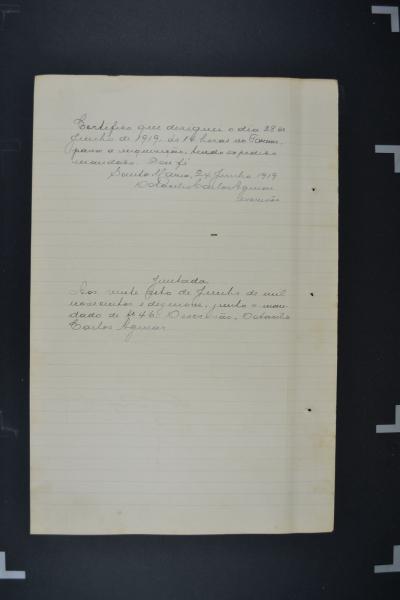 Certifico que designei o dia 28 de
Junho de 1919, ás 14 horas no Forum,
para a inquirição, tendo expedido
mandado. Dou fé
Santa Maria, 24 Junho 1919
Octacilio Carlos Aguiar
Escrivão
Juntada
Aos vinte oito de Junho de mil
novecentos e dezenove, junto o man-
dado de fs 46. O escrivão, Octacilio
Carlos Aguiar